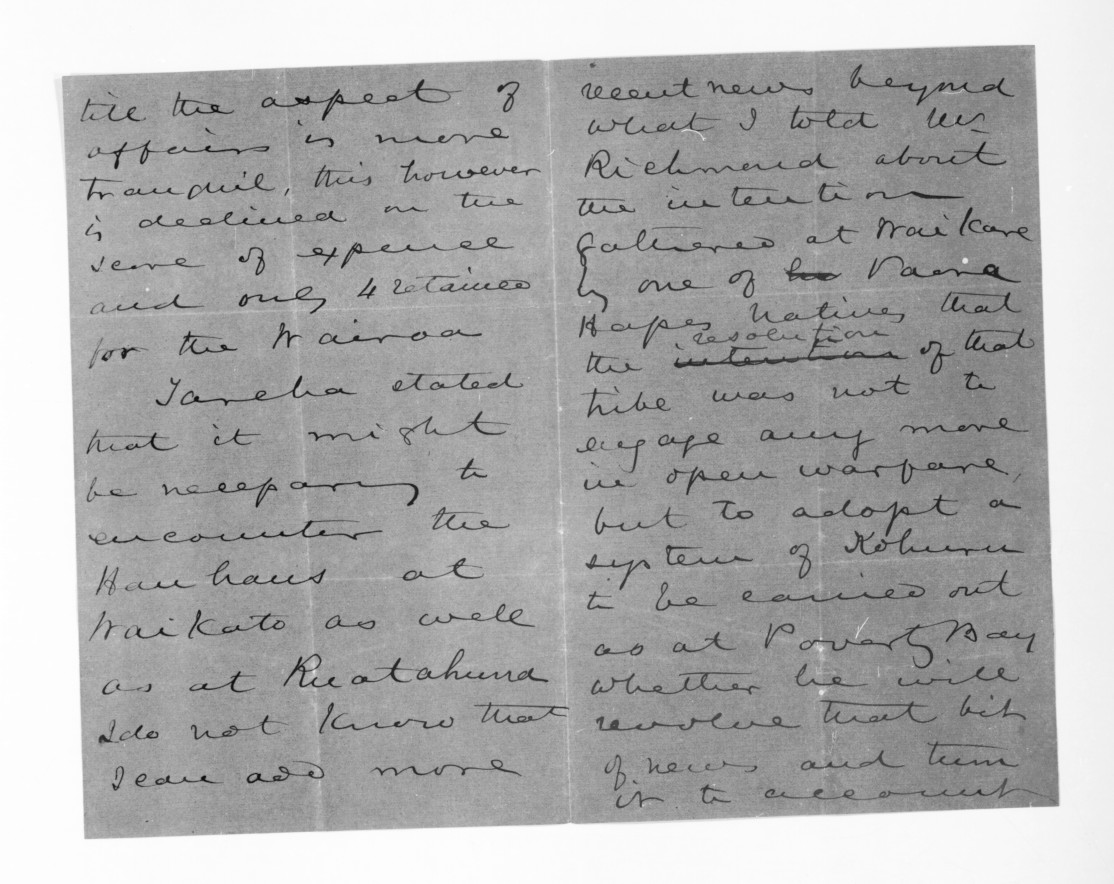 till the aspect of
affairs is more
tranquil, this however
is declined on the
score of expence
and only 4 retained
for the Wairoa
Tareha stated
that it might
be necessary to
encounter the
Hauhaus at
Waikato as well
as at Ruatahuna
I do not know that
I can add more
recent news beyond
what I told Mr
Richmond about
the intention
gathered at Waikare
by one of his Paora
Hapes natives that
resolution
the intention of that
tribe was not to
engage any more
in open warfare,
but to adopt a
system of Kohuru
to be carried out
as at Poverty Bay
whether he will
revolve that bit
of news and turn
it to account